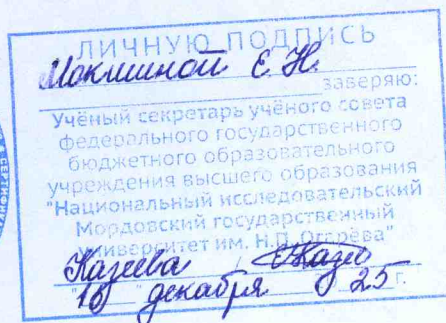 ЛИЧНУЮ ПОДПИСЬ
Мокшиной Е. Н.
заверяю:
Учёный секретарь учёного совета
федерального государственного
бюджетного образовательного
учреждения высшего образования
"Национальный исследовательский
Мордовский государственный
университет им. Н.П. Огарёва"
"16" декабря 25 г.